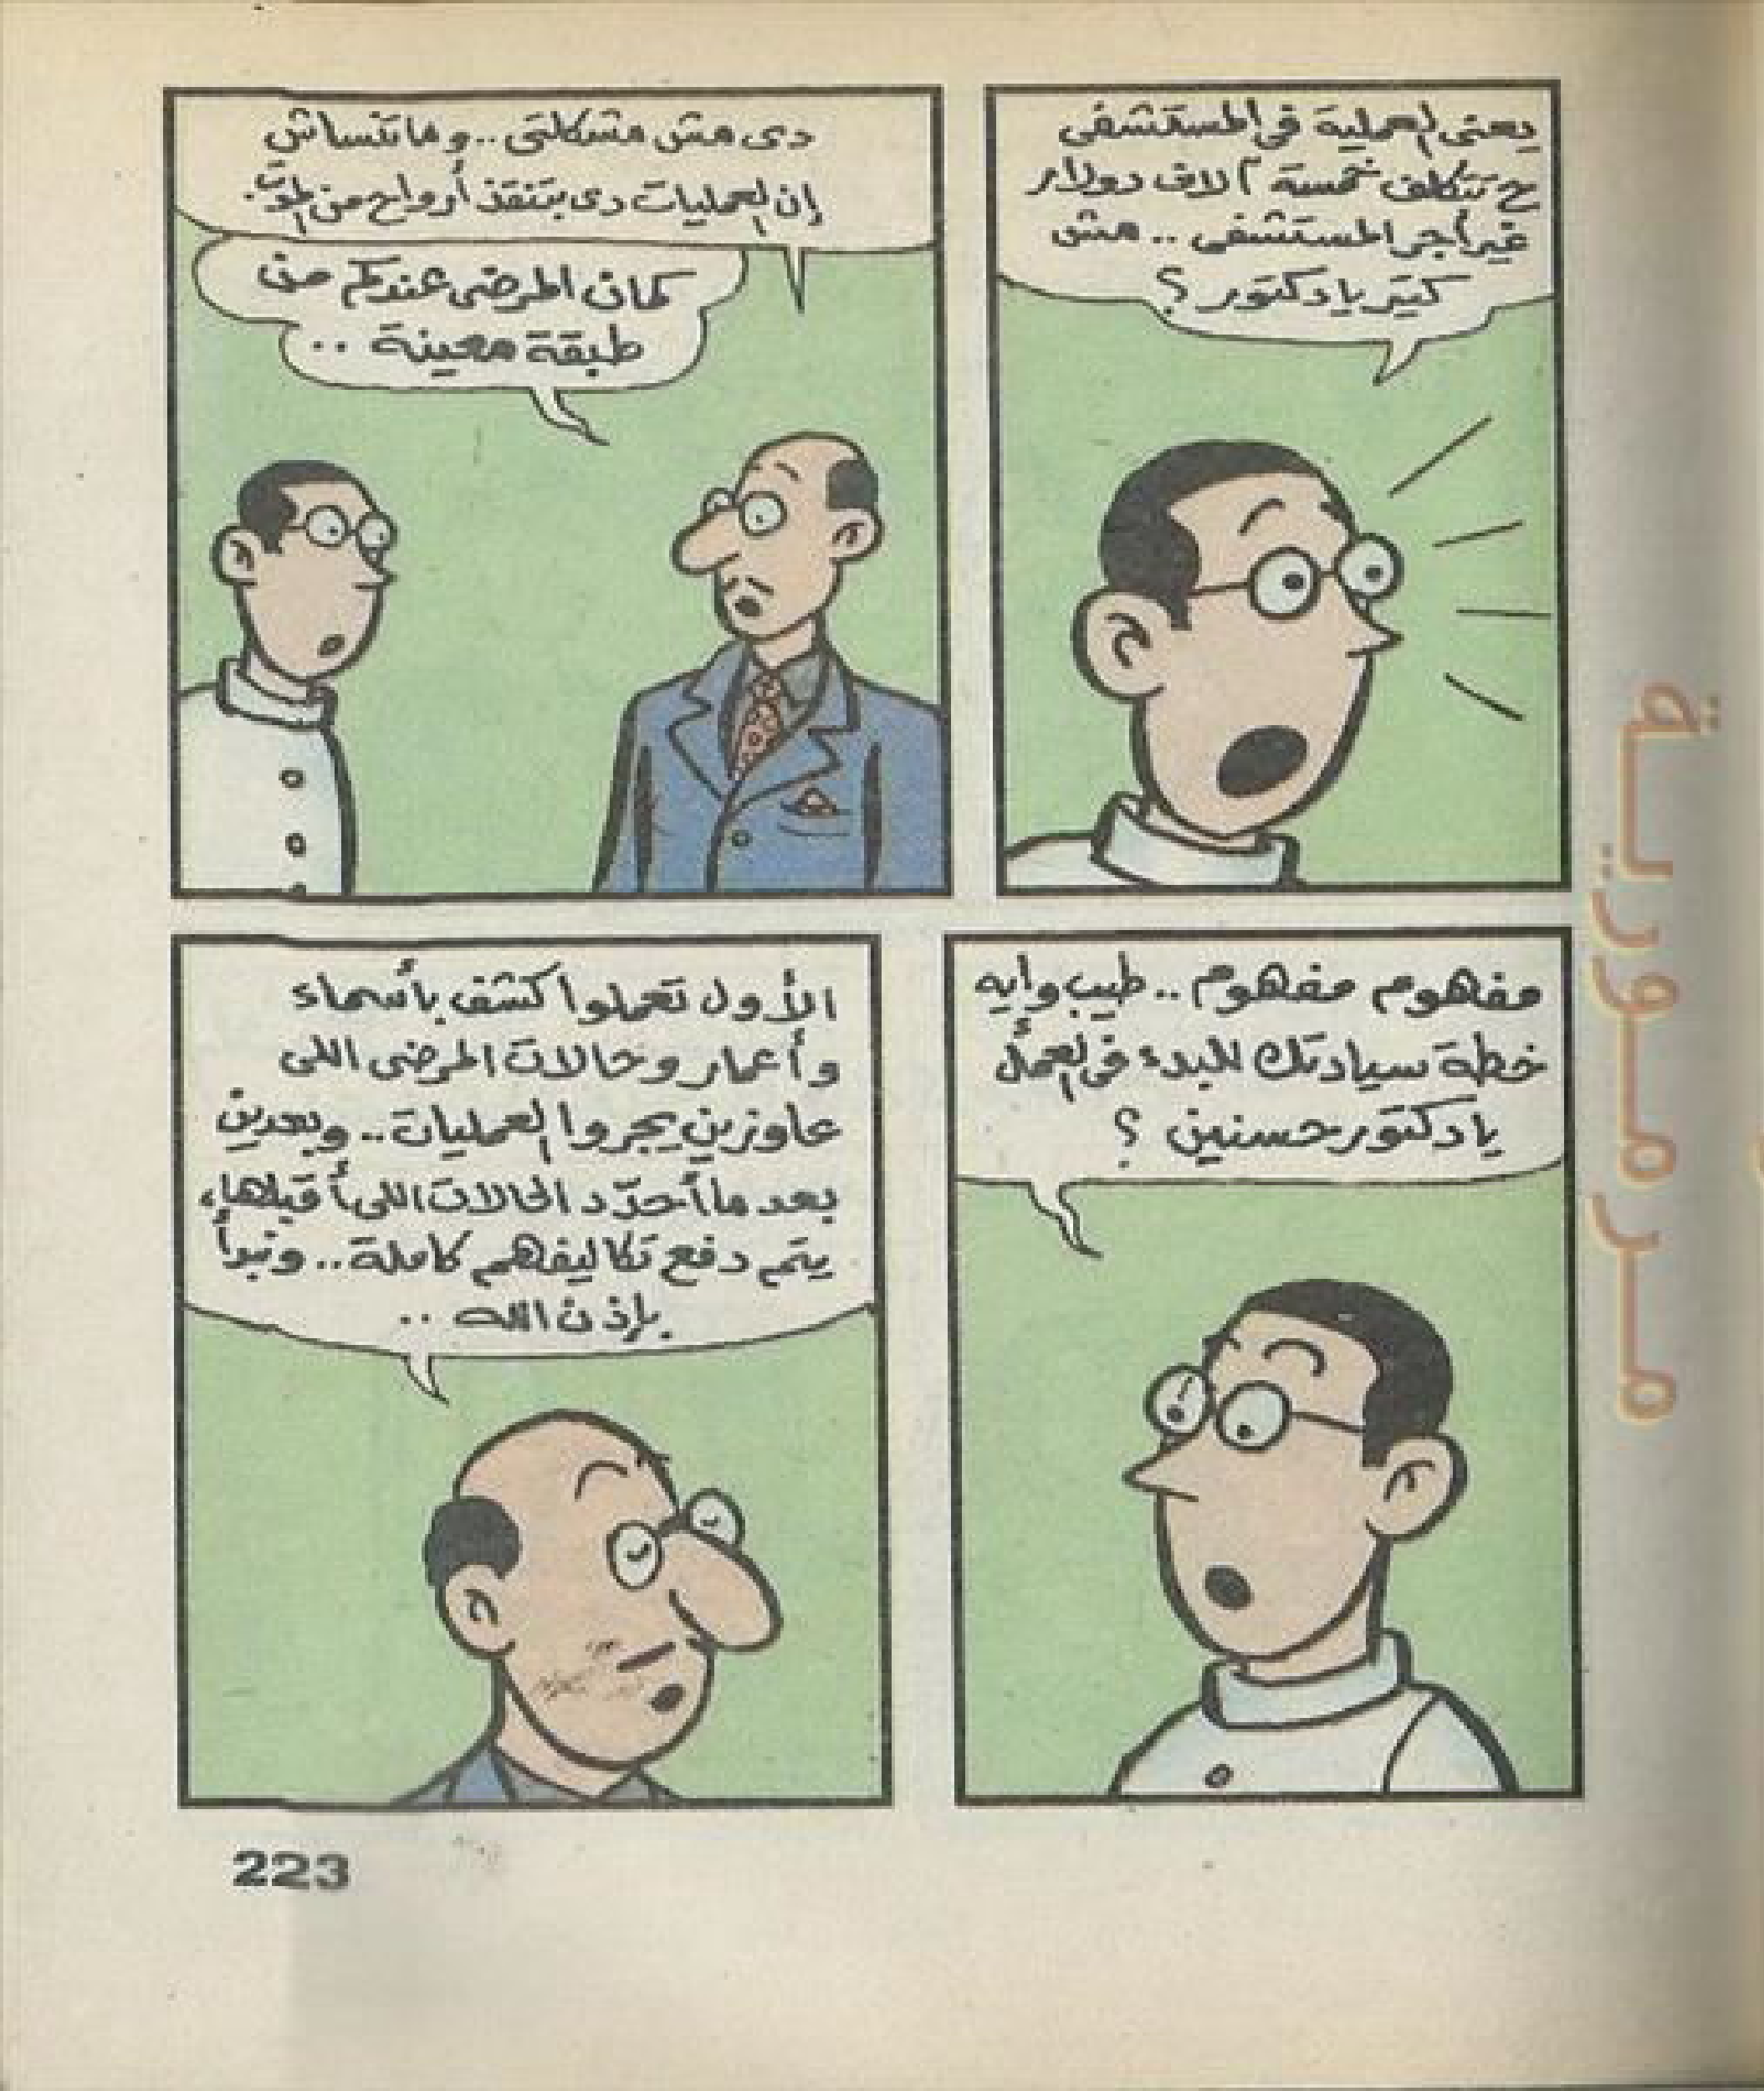 يعنى العملية فى المستشفى
ح تتكلف خمسة آلاف دولار
غير أجر المستشفى .. مش
كتير يا دكتور ؟
دى مش مشكلتى .. وماتنساش
إن العمليات دى بتنقذ أرواح من الموت.
كمان المرضى عندكم من
طبقة معينة ..
مفهوم مفهوم .. طيب وايه
خطة سيادتك للبدء فى العمل
يا دكتور حسنين ؟
الأول تعملوا كشف بأسماء
وأعمار وحالات المرضى اللى
عاوزين يجروا العمليات .. وبعدين
بعد ما أحدّد الحالات اللى أقبلها،
يتم دفع تكاليفهم كاملة .. ونبدأ
بإذن الله ..
223
مرمورية